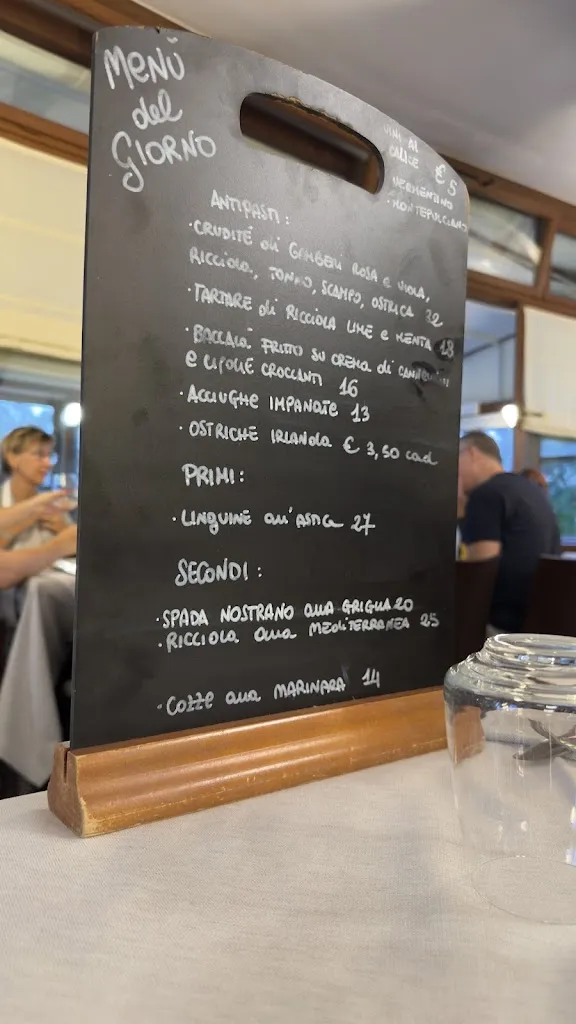 MENÙ
del
GIORNO
VINI AL
CALICE € 5
VERMENTINO
·MONTEPULCIANO
ANTIPASTI:
·CRUDITÉ di GAMBERI ROSA e VIOLA,
RICCIOLA, TONNO, SCAMPO, OSTRICA 32
·TARTARE di RICCIOLA LIME e MENTA 18
·BACCALÀ FRITTO SU CREMA di
e CIPOLLE CROCCANTI 16
·ACCIUGHE IMPANATE 13
·OSTRICHE IRLANDA € 3,50 cad
PRIMI:
·LINGUINE all'ASTICE 27
SECONDI:
·SPADA NOSTRANO alla GRIGLIA 20
·RICCIOLA alla MEDITERRANEA 25
·COZZE alla MARINARA 14